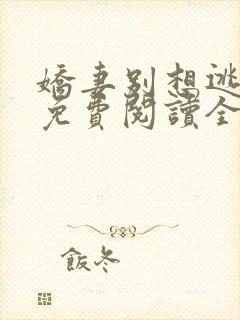 嬌妻別想逃
免費閱讀全
飯冬